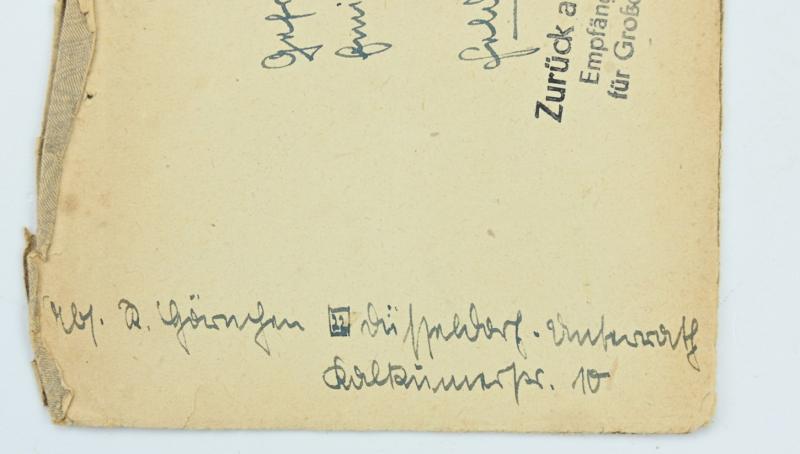 Gefr
Zurück a
Empfäng
für Große
Abs. K. Görnchen 22 Düsseldorf-Unterrath
Kalkumerstr. 10